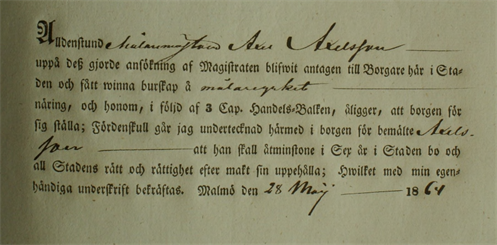 Alldenstund Målaremästaren Axel Axelsson
uppå deß gjorde ansökning af Magistraten blifwit antagen till Borgare här i Sta-
den och fått winna burskap å målareyrket
näring, och honom, i följd af 3 Cap. Handels-Balken, åligger, att borgen för
sig ställa; Fördenskull går jag undertecknad härmed i borgen för bemälte Axels-
son att han skall åtminstone i Sex år i Staden bo och
all Stadens rätt och rättighet efter makt sin uppehålla; Hwilket med min egen-
händiga underskrift bekräftas. Malmö den 28 Maj 1861